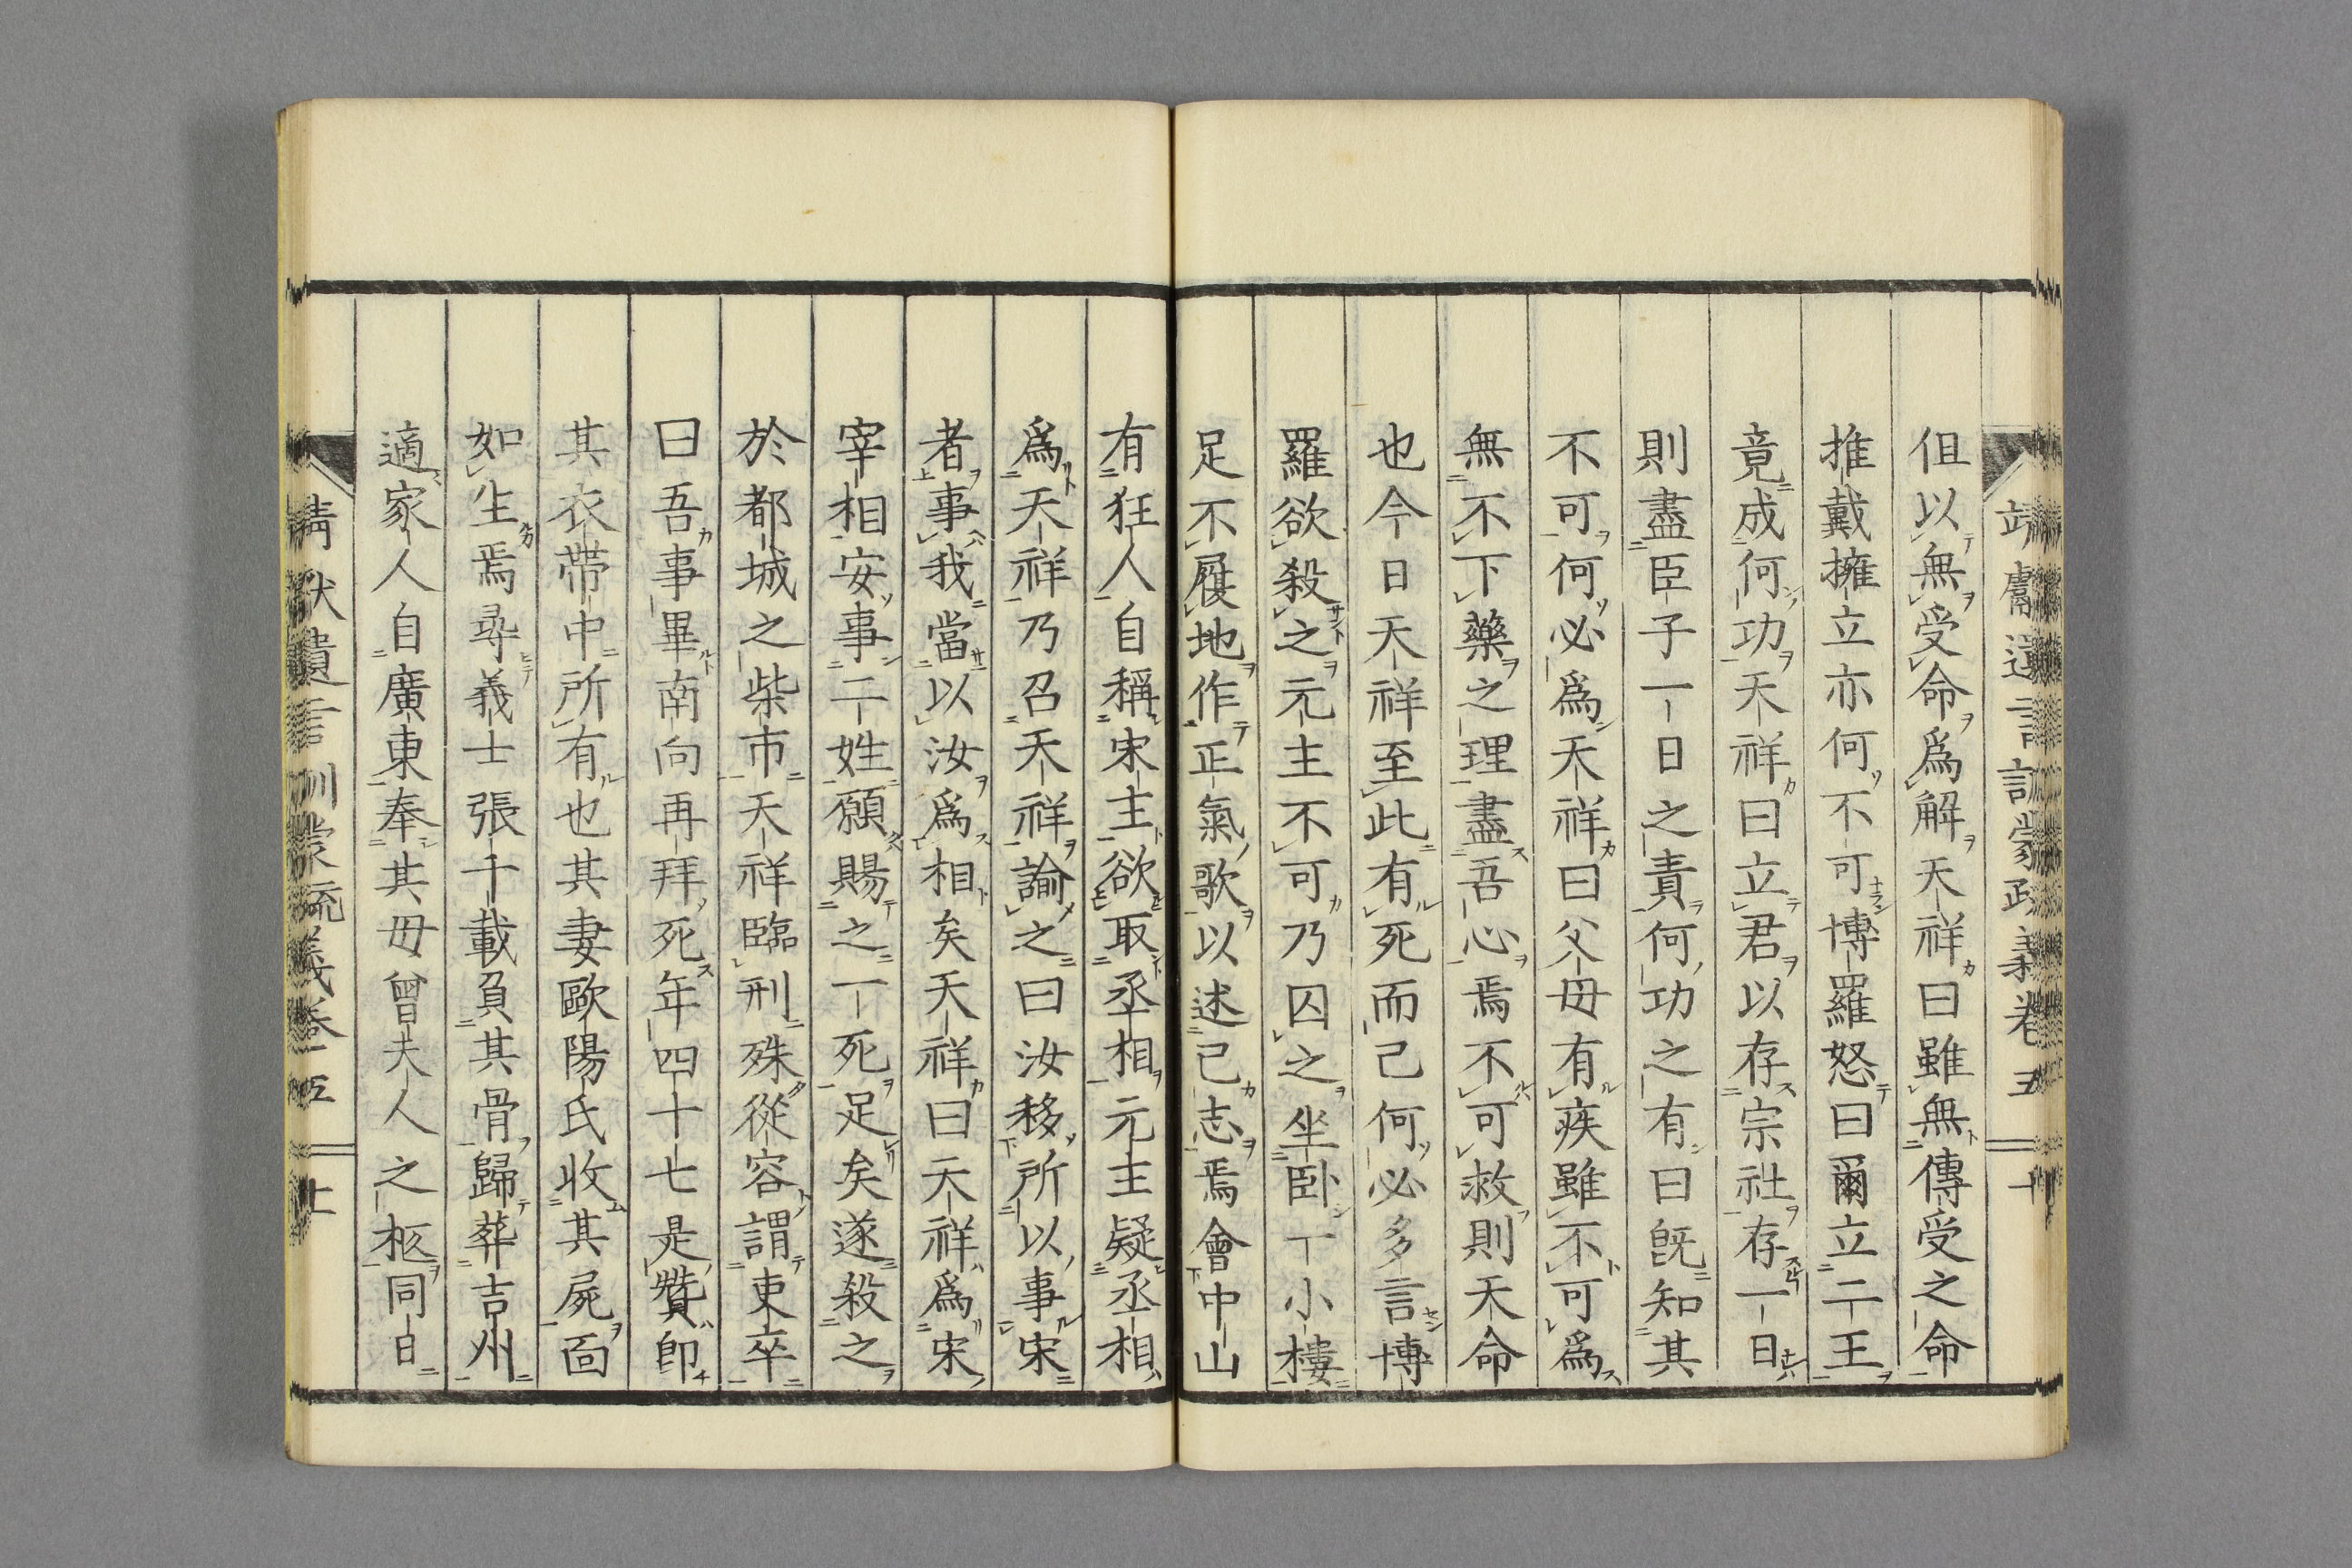 靖獻遺言訓蒙疏義卷五 十
但以無受命爲解天祥曰雖無傳受之命
推戴擁立亦何不可博羅怒曰爾立二王
竟成何功天祥曰立君以存宗社存一日
則盡臣子一日之責何功之有曰既知其
不可何必爲天祥曰父母有疾雖不可爲
無不下藥之理盡吾心焉不可救則天命
也今日天祥至此有死而已何必多言博
羅欲殺之元主不可乃囚之坐臥一小樓
足不履地作正氣歌以述己志焉會中山
有狂人自稱宋主欲取丞相元主疑丞相
爲天祥乃召天祥諭之曰汝移所以事宋
者事我當以汝爲相矣天祥曰天祥爲宋
宰相安事二姓願賜之一死足矣遂殺之
於都城之柴市天祥臨刑殊從容謂吏卒
曰吾事畢南向再拜死年四十七是贊卽
其衣帶中所有也其妻歐陽氏收其屍面
如生焉尋義士張千載負其骨歸葬吉州
適家人自廣東奉其母曾夫人之柩同日
靖獻遺言訓蒙疏義卷五 十一